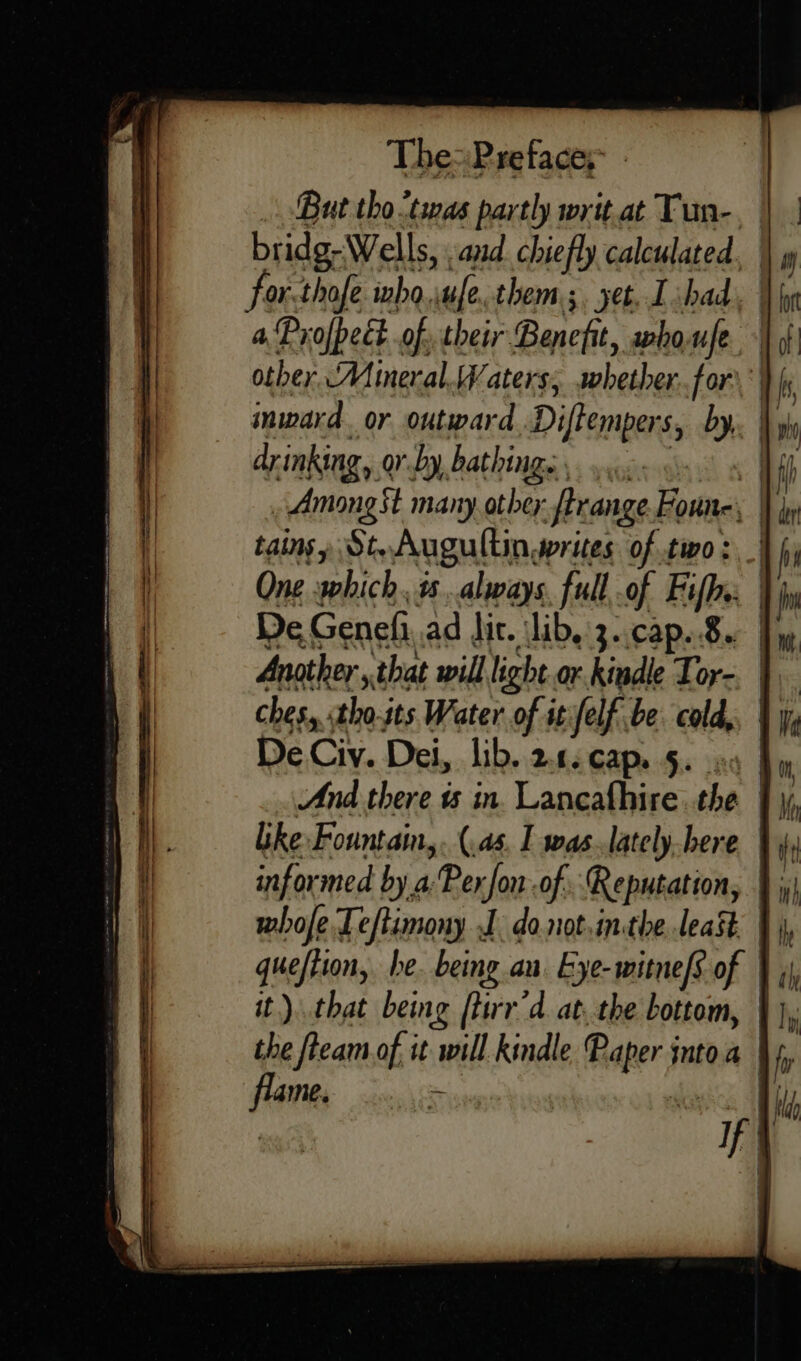 The Preface.
But tho 'twas partly writ at Tun-
bridg-Wells, and chiefly calculated
for thoſe who uſe them; yet I had
a Proſpect of their Benefit, who uſe
other Mineral Waters, whether for
inward or outward Diſtempers, by
drinking, or by bathing.
Amongſt many other ſtrange Foun-
tains, St. Auguſtin writes of two:
One which is always full of Fiſh.
De Geneſi ad lit. lib. 3. cap. 8.
Another, that will light or kindle Tor-
ches, tho its Water of it ſelf be cold,
De Civ. Dei, lib. 21. cap. 5.
And there is in Lancaſhire the
like Fountain, (as I was lately here
informed by a Perſon of Reputation,
whoſe Teſtimony I do not in the leaſt
queſtion, he being an Eye-witneſs of
it) that being ſtirr'd at the bottom,
the ſteam of it will kindle Paper into a
flame.
If